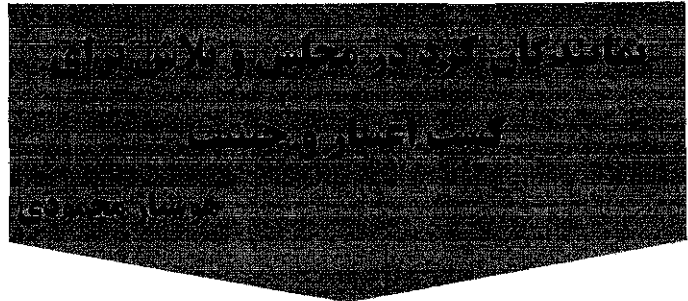 نمایندگان کرد در مجلس و تلاش برای
کسب اعتبار و حیثیت